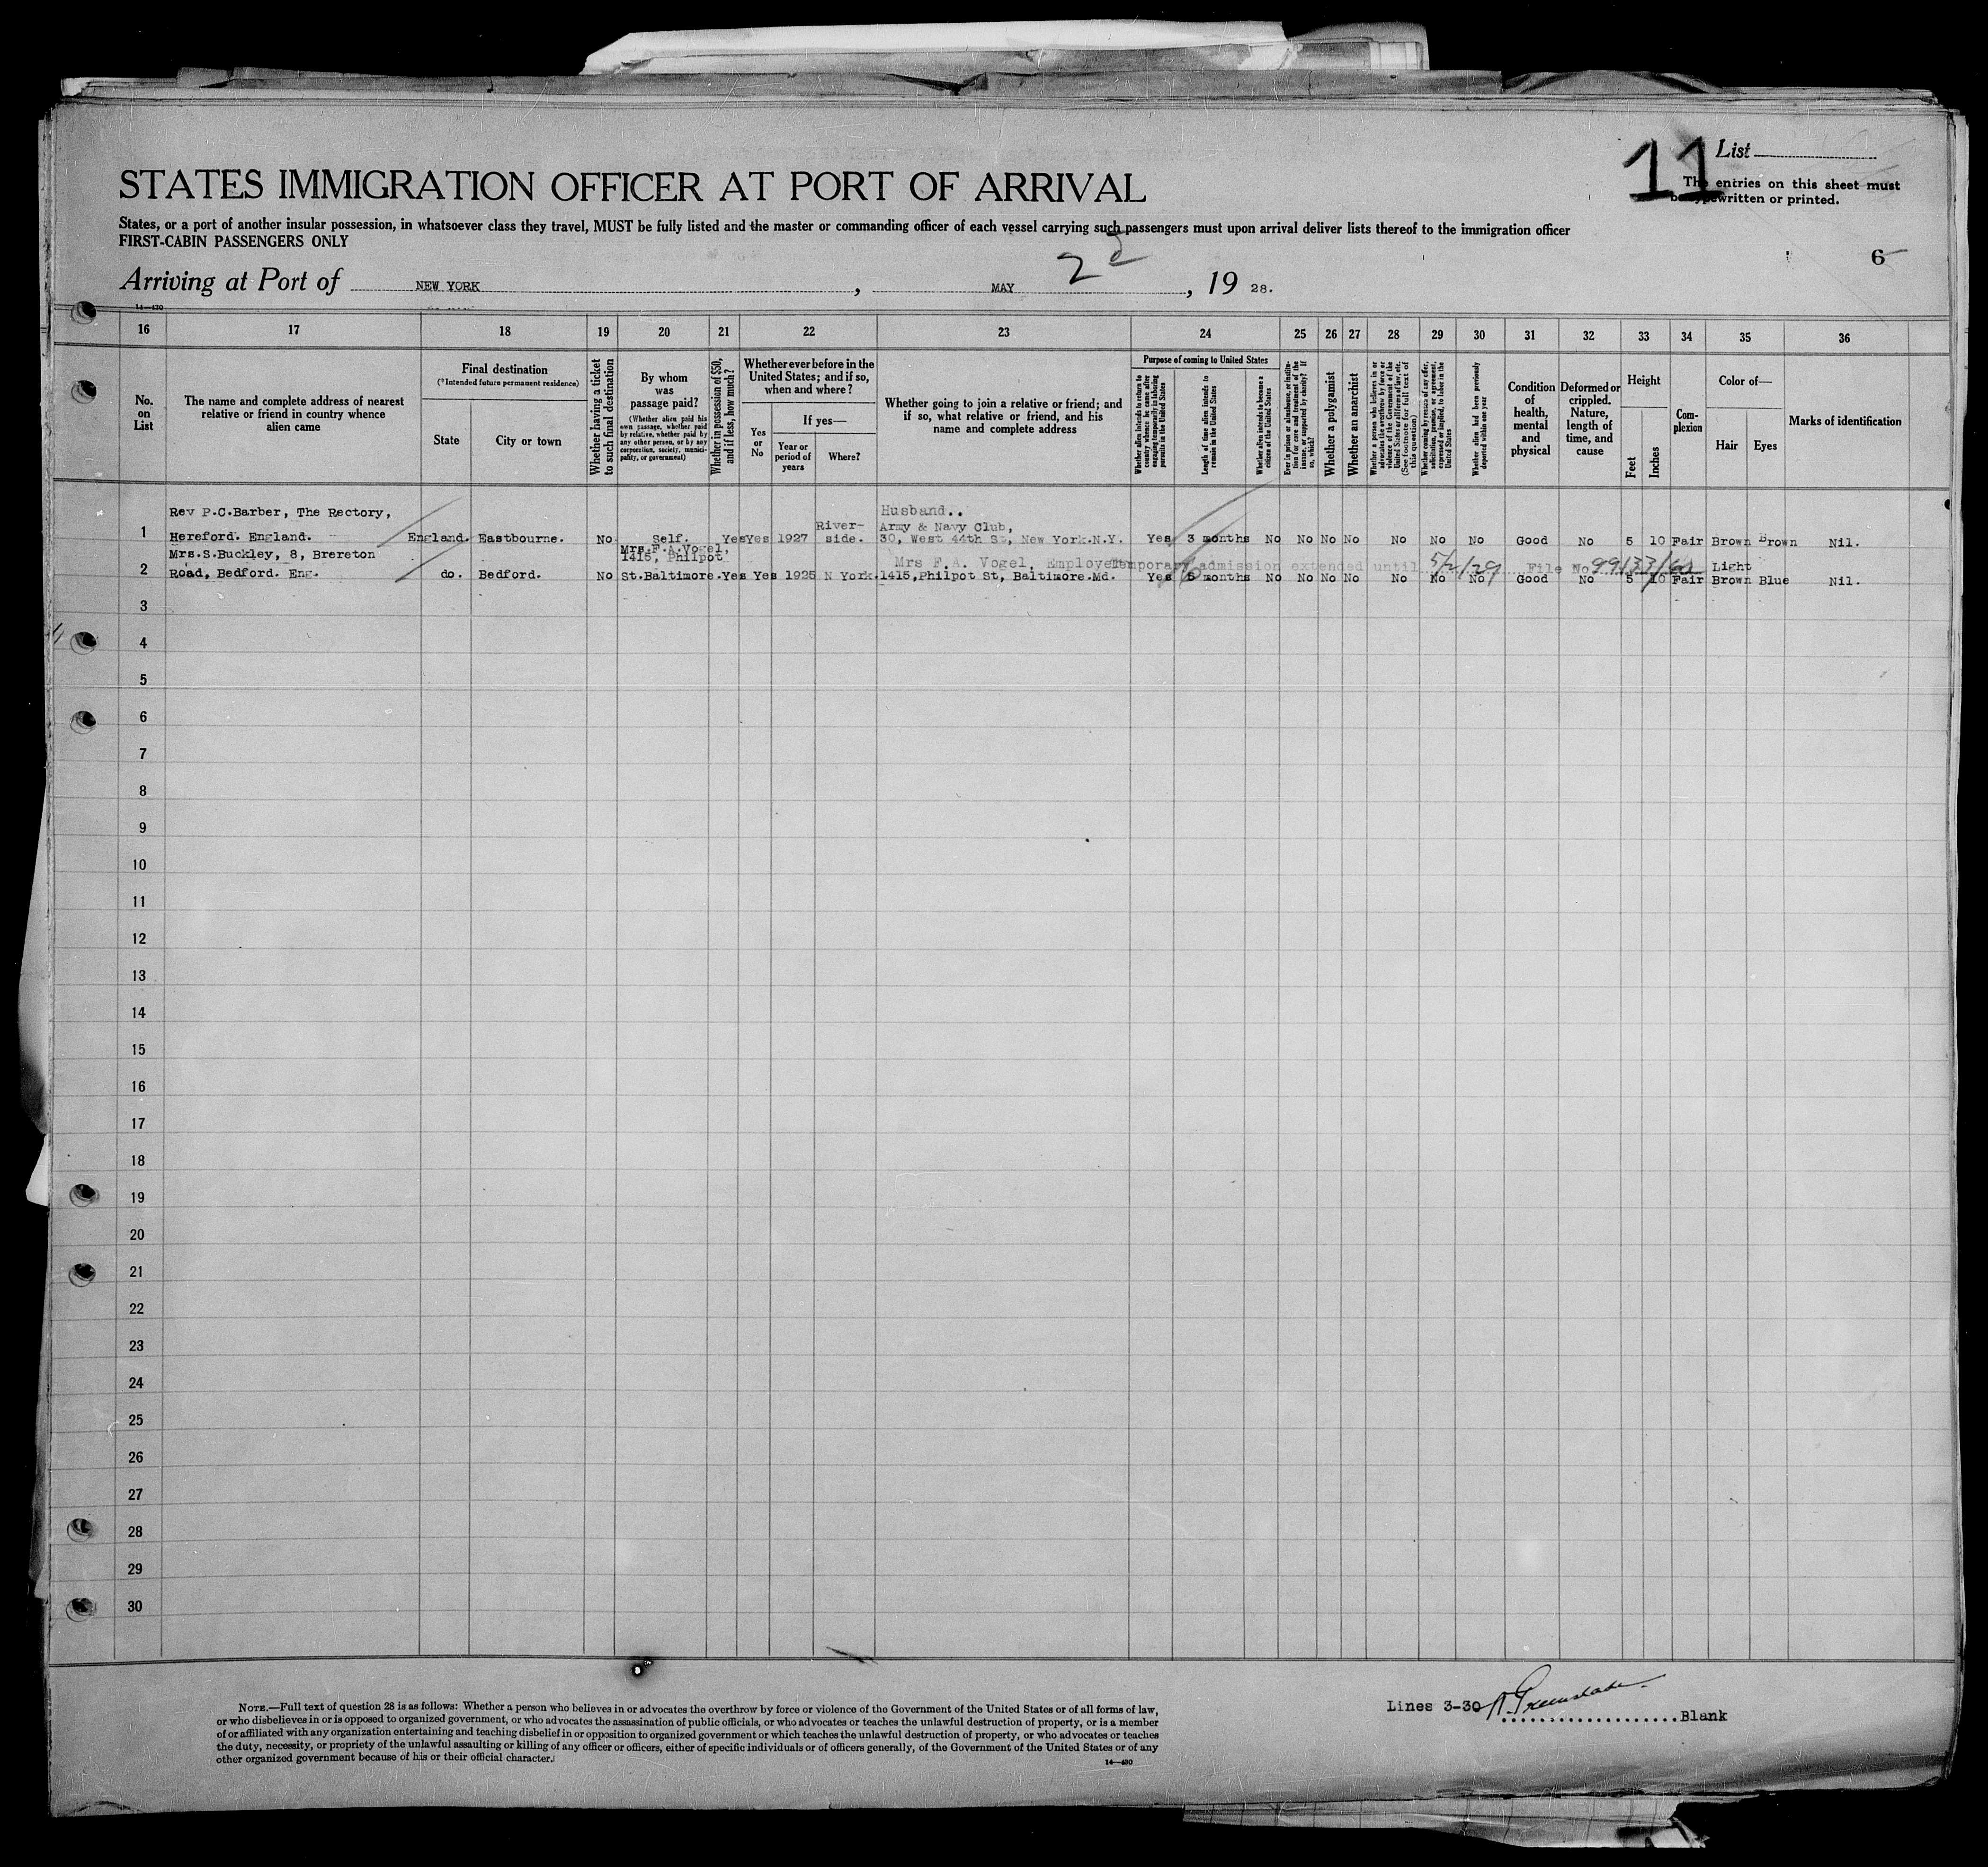 11
List
The entries on this sheet must
be typewritten or printed.
STATES IMMIGRATION OFFICER AT PORT OF ARRIVAL
States, or a port of another insular possession, in whatsoever class they travel, MUST be fully listed and the master or commanding officer of each vessel carrying such passengers must upon arrival deliver lists thereof to the immigration officer
FIRST-CABIN PASSENGERS ONLY
6
Arriving at Port of NEW YORK, MAY 2d, 19 28.
14—430
16 17 18 19 20 21 22 23 24 25 26 27 28 29 30 31 32 33 34 35 36
No. on List
The name and complete address of nearest relative or friend in country whence alien came
Final destination
(*Intended future permanent residence)
State
City or town
Whether having a ticket to such final destination
By whom was passage paid?
(Whether alien paid his own passage, whether paid by relative, whether paid by any other person, or by any corporation, society, municipality, or government)
Whether in possession of $50, and if less, how much?
Whether ever before in the United States; and if so, when and where?
Yes or No
If yes—
Year or period of years
Where?
Whether going to join a relative or friend; and if so, what relative or friend, and his name and complete address
Purpose of coming to United States
Whether alien intends to return to country whence he came after engaging temporarily in laboring pursuits in the United States
Length of time alien intends to remain in the United States
Whether alien intends to become a citizen of the United States
Ever in prison or almshouse, or institution for care and treatment of the insane, or supported by charity? If so, which?
Whether a polygamist
Whether an anarchist
Whether a person who believes in or advocates the overthrow by force or violence of the Government of the United States or all forms of law, etc. (See footnote for full text of this question)
Whether coming by reason of any offer, solicitation, promise, or agreement, expressed or implied, to labor in the United States
Whether alien had been previously deported within one year
Condition of health, mental and physical
Deformed or crippled. Nature, length of time, and cause
Height
Feet
Inches
Complexion
Color of—
Hair
Eyes
Marks of identification
Rev P.C.Barber, The Rectory, River- Husband..
Army & Navy Club,
1 Hereford. England. England. Eastbourne. No Self. Yes Yes 1927 side. 30, West 44th St, New York.N.Y. Yes 3 months No No No No No No No Good No 5 10 Fair Brown Brown Nil.
Mrs.S.Buckley, 8, Brereton Mrs.F.A.Vogel,
1415, Philpot Mrs F.A. Vogel, Employer Temporary admission extended until 5/2/29 File No 99133/ Light
2 Road, Bedford. Eng. do. Bedford. No St.Baltimore. Yes Yes 1925 N York. 1415,Philpot St, Baltimore.Md. Yes 6 months No No No No No No No Good No 5 10 Fair Brown Blue Nil.
3
4
5
6
7
8
9
10
11
12
13
14
15
16
17
18
19
20
21
22
23
24
25
26
27
28
29
30
NOTE.—Full text of question 28 is as follows: Whether a person who believes in or advocates the overthrow by force or violence of the Government of the United States or of all forms of law,
or who disbelieves in or is opposed to organized government, or who advocates the assassination of public officials, or who advocates or teaches the unlawful destruction of property, or is a member
of or affiliated with any organization entertaining and teaching disbelief in or opposition to organized government or which teaches the unlawful destruction of property, or who advocates or teaches
the duty, necessity, or propriety of the unlawful assaulting or killing of any officer or officers, either of specific individuals or of officers generally, of the Government of the United States or of any
other organized government because of his or their official character.
14—430
Lines 3-30 Blank